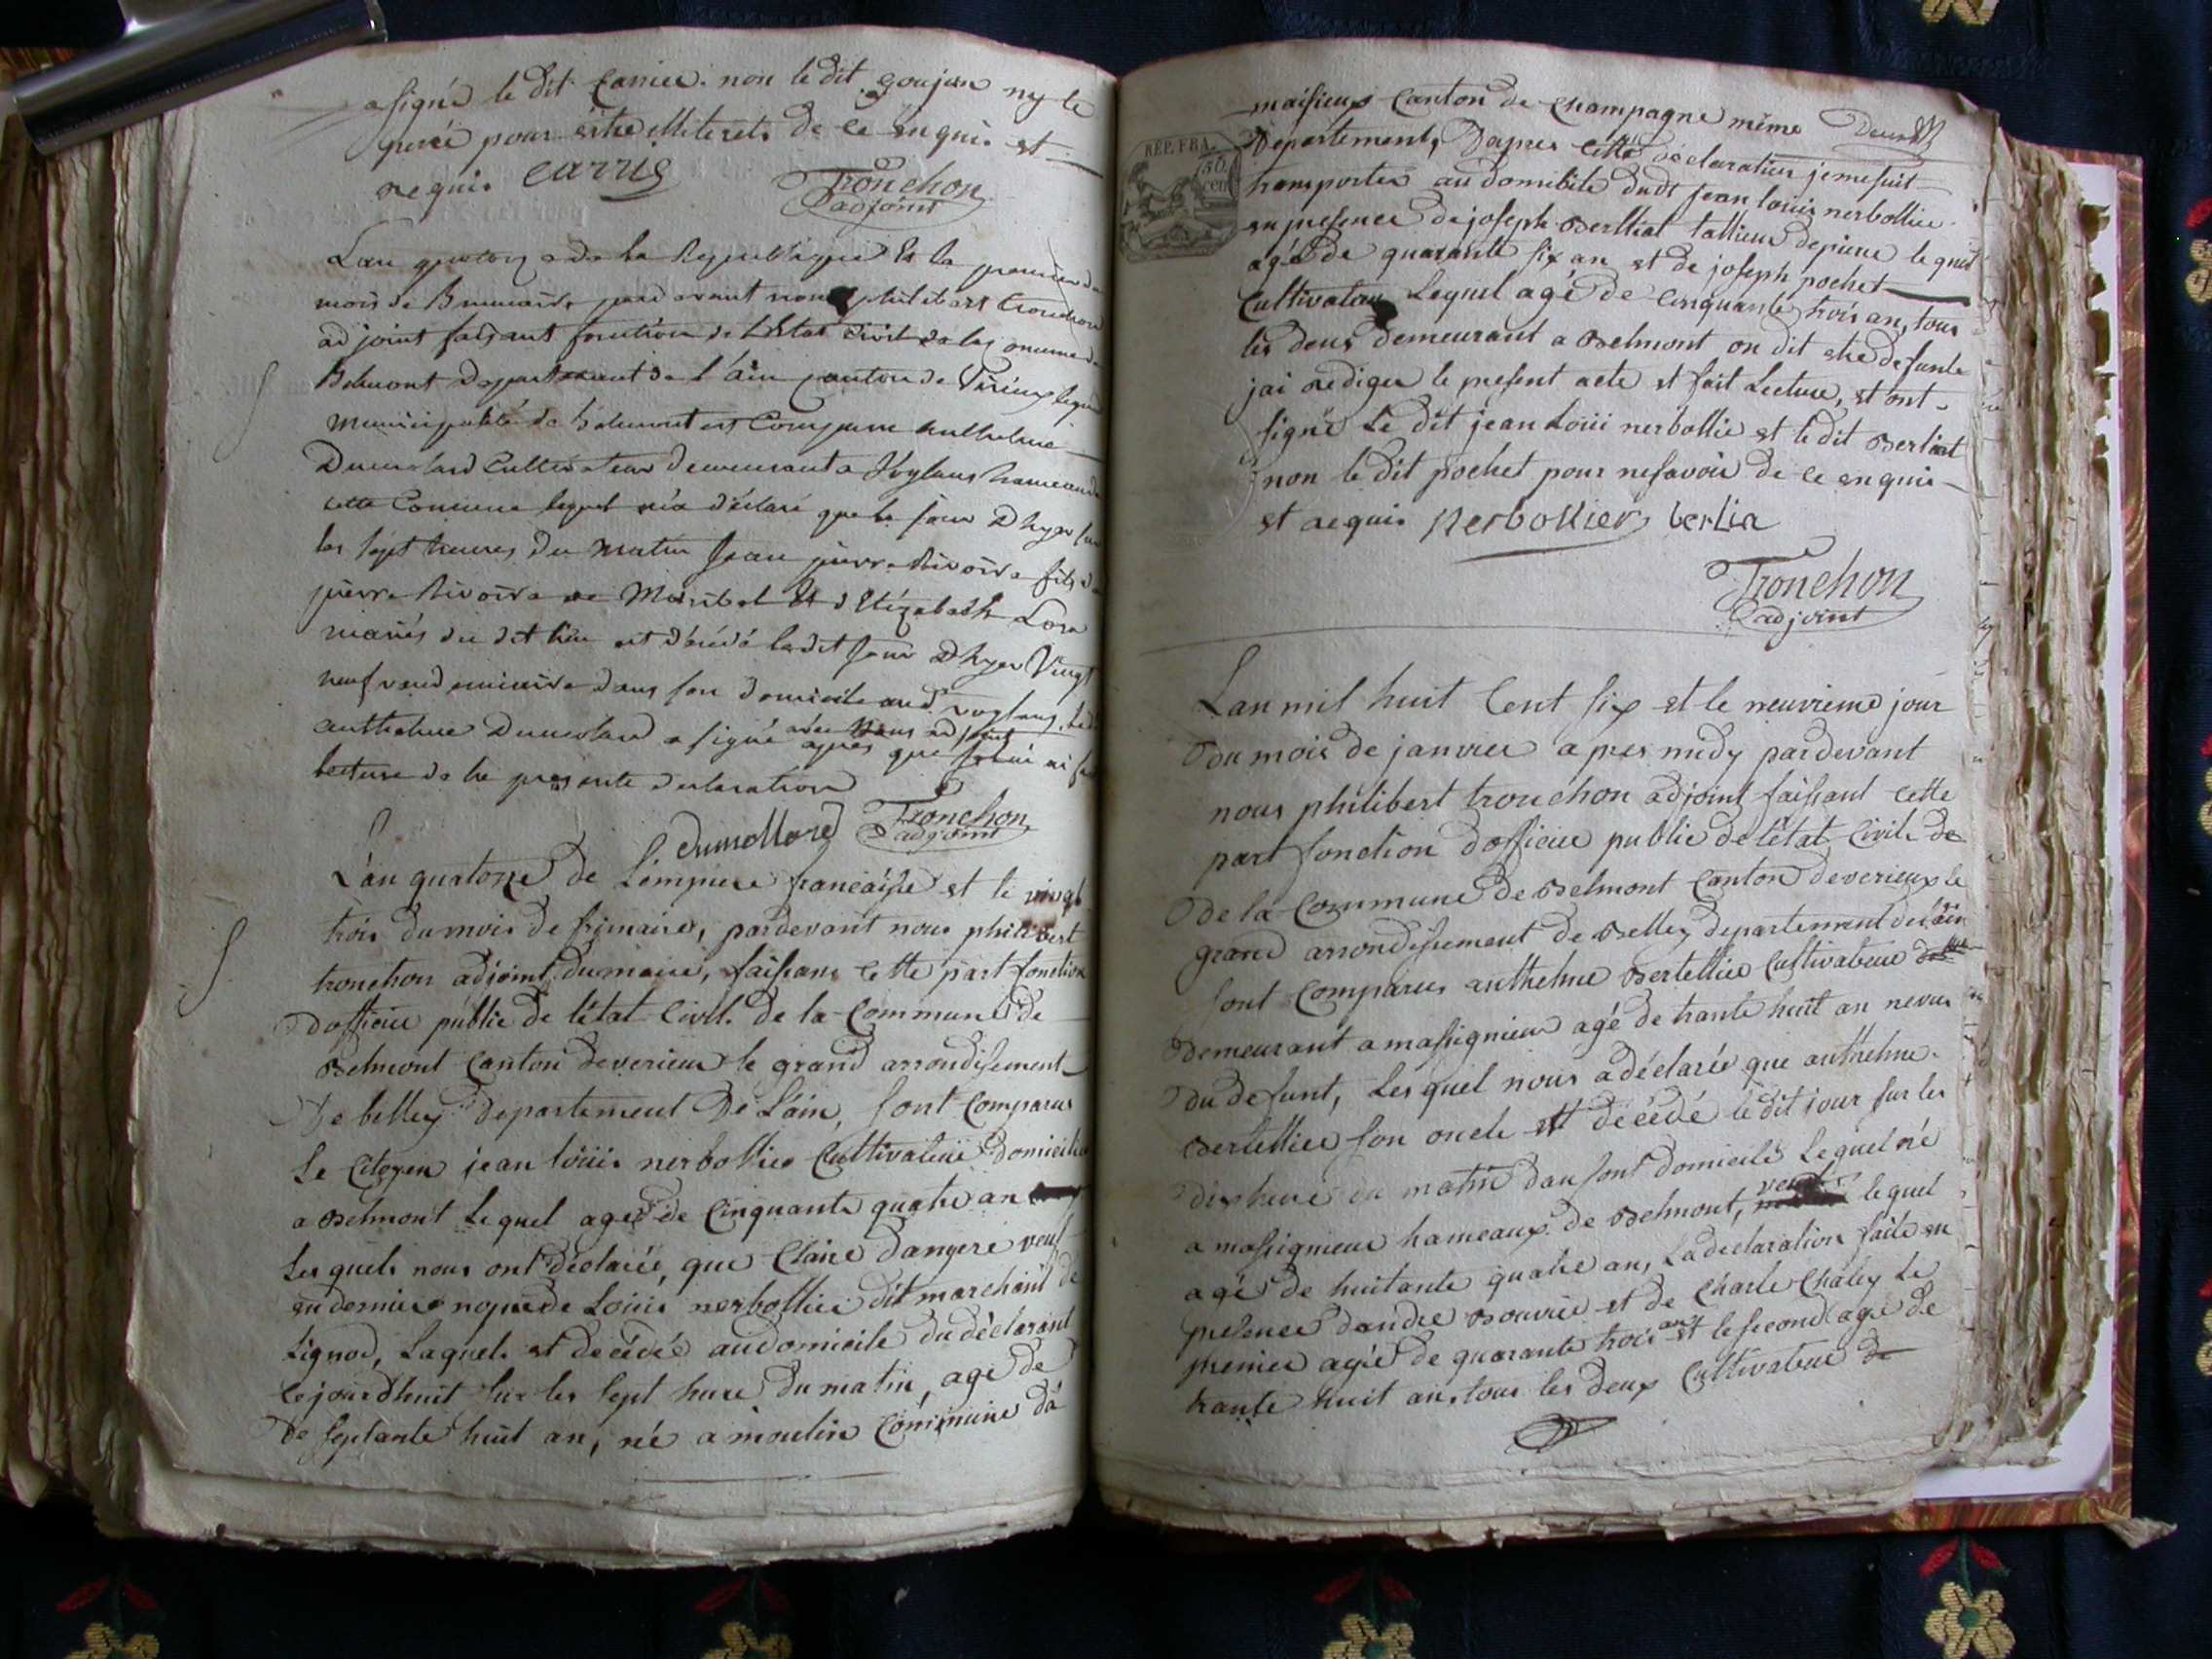 a signé le dit Carrier. non le dit goujon ny le
peré pour estre illiterets de ce enquis et
requis carrig
Tronchon
adjoint
Lan quatorze de la Republique Et la premier du
mois de Brumaire pard avant nous philibert tronchon
adjoint faisant fonction de l'Etat Civil de la Comune de
Belmont Departement de l'ain canton de Virieux legrand
Municipalité de belmont est Comparu anthelme
Dumolard Cultivateur demeurant a Voglans hameau de
cette Comune lequel m'a déclaré que le jour D hyer sur
les sept heures du Matin Jean pierre Rivoire fils de
pierre Rivoire de Miribel Et d Elizabeth
mariés du dit lieu est décédé le dit jour D hyer Vingt
neuf vendemiaire dans son domicile aud. voglans. Led.
anthelme Dumolard a signé avec nous adjoint
après que lui ai fait
lecture de la presente declaration
Dumollard Tronchon
adjoint
L'an quatorze de L'empiere francaisse et le vingt
trois du mois de frimaire, pardevant nous philibert
tronchon adjoint du maire, faissant cette part fonction
dofficier public de l'état Civil. de la Commune de
Belmont Canton deverieux le grand arrondissement
De belley Departement De L'ain, sont Comparus
Le Citoyen jean loüis nerbollier Cultivateur domicilié
a Belmont Lequel agé de Cinquante quatre an
Lesquels nous ont déclarée, que Claire dangere veuf
en dernière nopse de Loüis nerbollier dit marchant de
Lignod, Laquele et décédée au domicile du déclarant
cejourdhuit sur les sept hure du matin, age de
De septante huit an, né a moulin Commune dà
maisieux Canton de Champagne même
Departement, D'apres cette déclaration jemesuit
transporter au domicile dudt jean loüis nerbollier
en presence de joseph Berlliat tallieur depierre lequel
agé de quarante six an et de joseph pochet
Cultivateur Lequel agé de Cinquante trois an, tous
les deux demeurant a Belmont on dit etre defunte
jai rediger le present acte et fait Lecture, et ont
signé Le dit jean Loüis nerbollier et le dit Berliat
non le dit pochet pour nesavoir de ce enquis
et requis Nerbollier berlia
Tronchon
adjoint
REP. FRA.
50
cen
Lan mil huit Cent six et le neuvieme jour
du mois de janvier apres midy pardevant
nous philibert tronchon adjoint faissant cette
part fonction dofficier public de l'état Civil de
de la Commune de Belmont Canton deverieux le
grand arrondissement de Belley departement de lain
sont Comparus anthelme Bertellier Cultivateur
demeurant a massignieu agé de trante huit an neveu
du defunt, Lesquel nous a déclarée que anthelme
Bertellier son oncle est décédé le dit jour sur les
dix heure du matin dan sont domicile Lequel né
a massignieux hameaux de Belmont, veuf lequel
agé de huitante quatre an, La declaration faite en
presence dandre Bouvier et de Charle Chaley Le
premier agée de quarante trois an et le second age de
trante huit an. tous les deux Cultivateur de